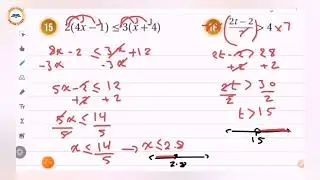 15 2(4x − 1) ≤ 3(x + 4)
8x − 2 ≤ 3x + 12
−3x −3x
5x − 2 ≤ 12
+2 +2
5x/5 ≤ 14/5
x ≤ 14/5 → x ≤ 2.8
2.8
(2t − 2/7) > 4 x7
2t − 2 > 28
+2 +2
2t/2 > 30/2
t > 15
15